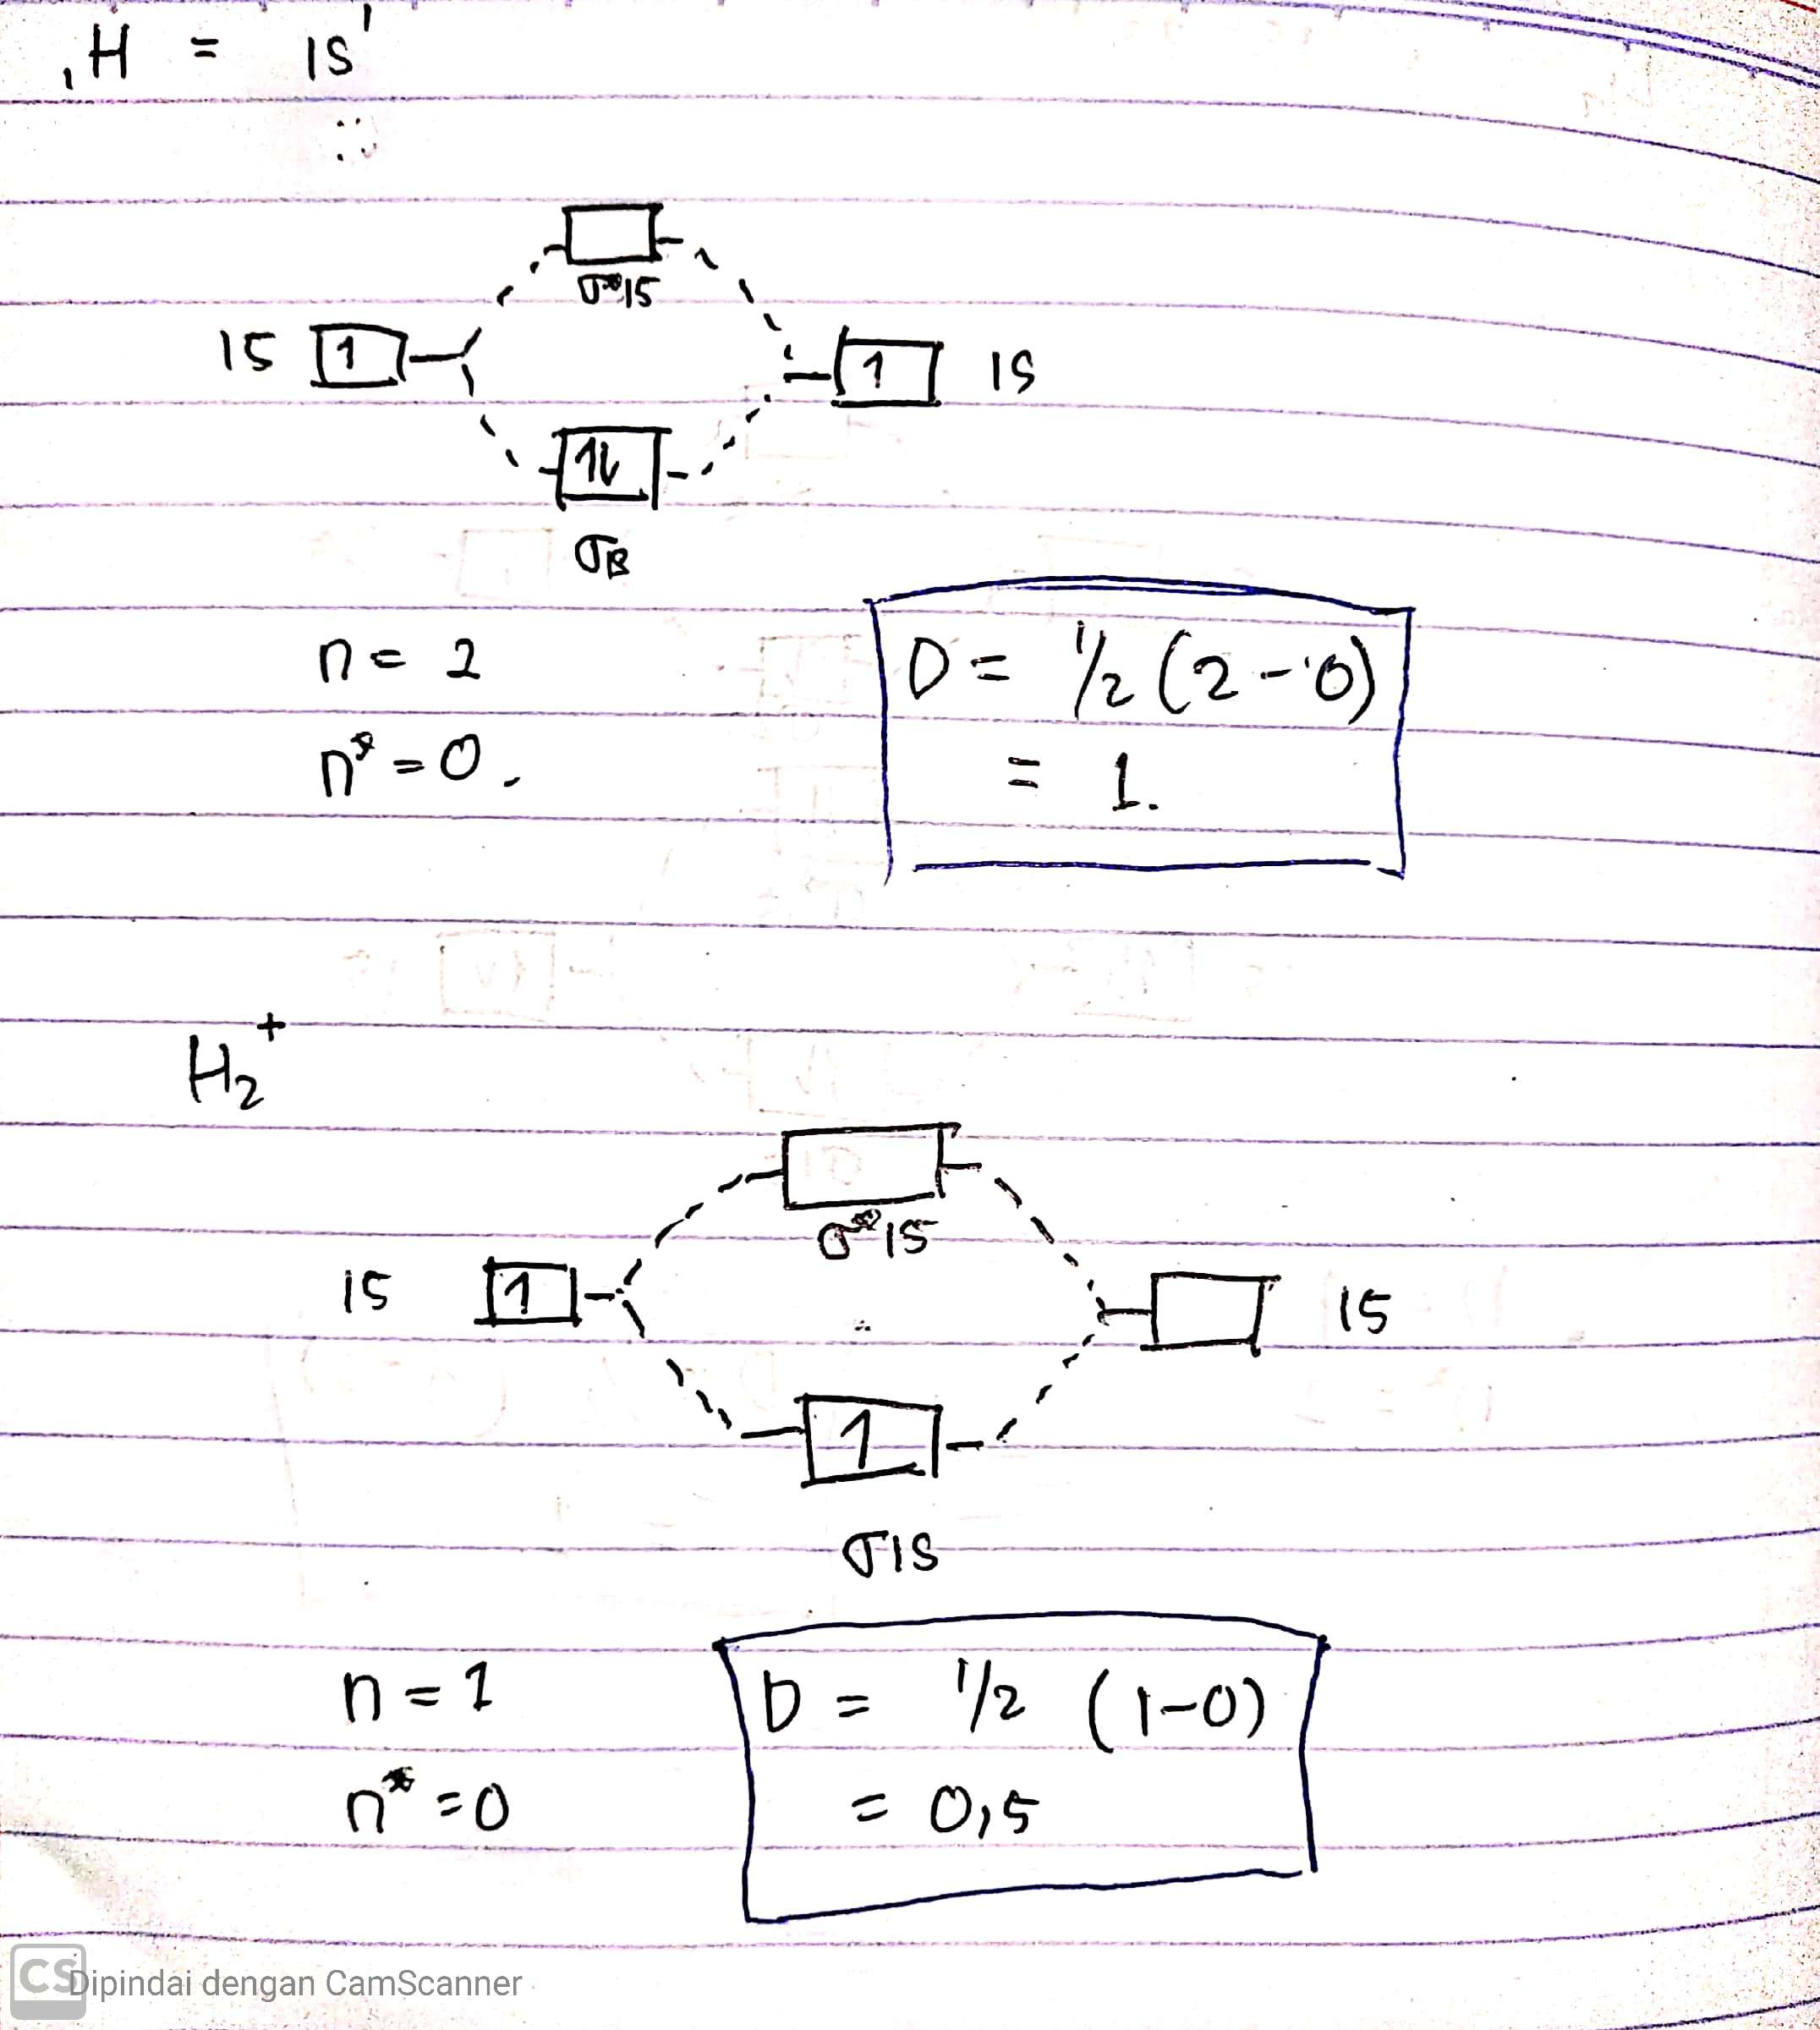 ₁H = 1s¹
σ*1s
1s 1 1 1s
1L
σ1s
n = 2
n* = 0.
D = 1/2 (2 - 0)
= 1.
H₂⁺
σ*1s
1s 1 1s
1
σ1s
n = 1
n* = 0
D = 1/2 (1-0)
= 0,5
CS Dipindai dengan CamScanner